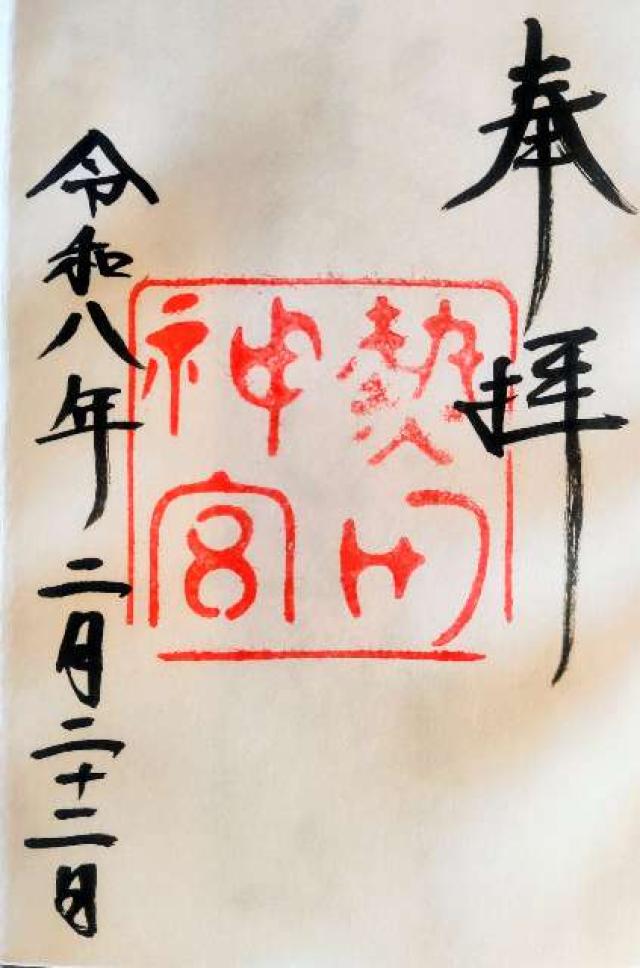 奉拝
熱田
神宮
令和八年二月二十二日